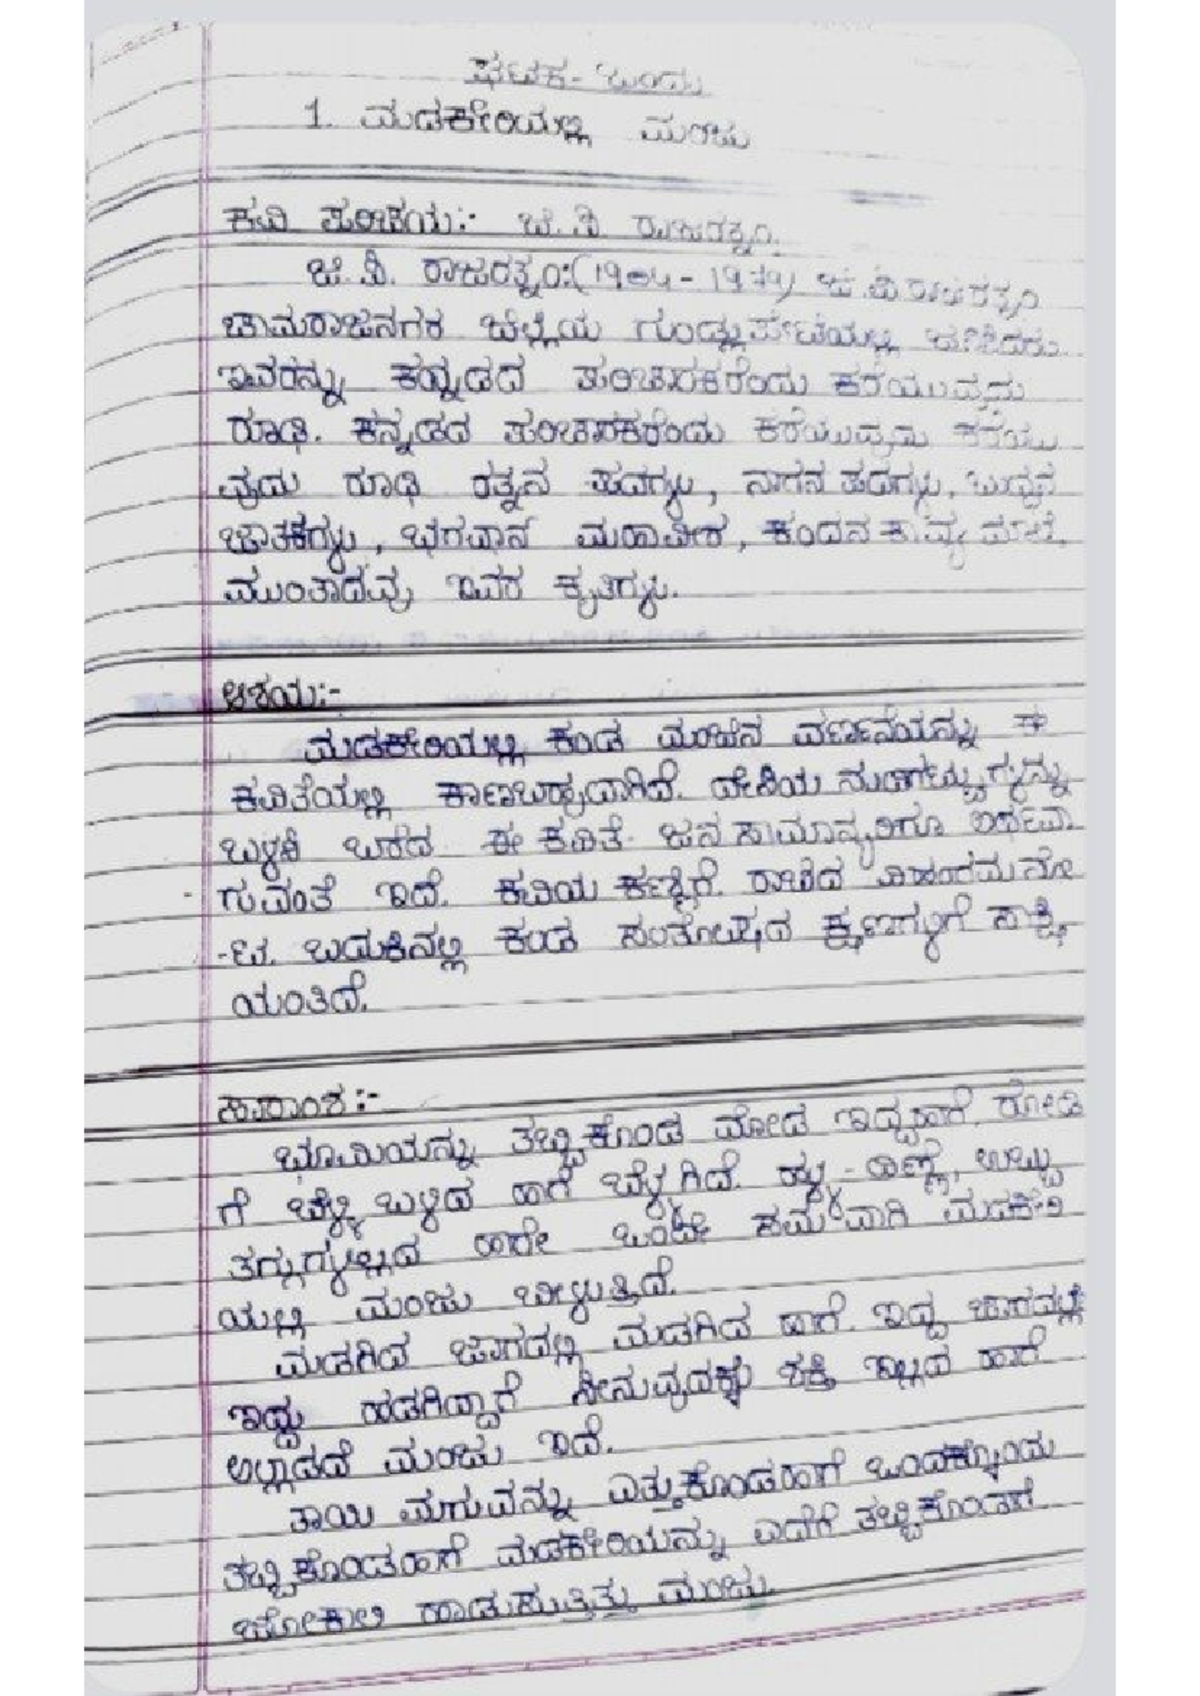 ಘಟಕ- ಒಂದು
1. ಮಡಕೇರಿಯಲ್ಲಿ ಮಂಜು
ಕವಿ ಪರಿಚಯ:- ಜಿ.ಪಿ. ರಾಜರತ್ನಂ.
ಜಿ.ಪಿ. ರಾಜರತ್ನಂ:(1904 - 1979) ಜಿ.ಪಿ.ರಾಜರತ್ನಂ
ಚಾಮರಾಜನಗರ ಜಿಲ್ಲೆಯ ಗುಂಡ್ಲುಪೇಟೆಯಲ್ಲಿ ಜನಿಸಿದರು.
ಇವರನ್ನು ಕನ್ನಡದ ಪರಿಚಾರಕರೆಂದು ಕರೆಯುವುದು
ರೂಢಿ. ಕನ್ನಡದ ಪರಿಚಾರಕರೆಂದು ಕರೆಯುವುದು ಕರೆಯು
ವುದು ರೂಢಿ ರತ್ನನ ಪದಗಳು, ನಾಗನ ಪದಗಳು, ಬುದ್ಧನ
ಜಾತಕಗಳು, ಭಗವಾನ್ ಮಹಾವೀರ, ಕಂದನ ಕಾವ್ಯ ಮಾಲೆ,
ಮುಂತಾದವು ಇವರ ಕೃತಿಗಳು.
ಆಶಯ:-
ಮಡಕೇರಿಯಲ್ಲಿ ಕಂಡ ಮಂಜಿನ ವರ್ಣನೆಯನ್ನು ಈ
ಕವಿತೆಯಲ್ಲಿ ಕಾಣಬಹುದಾಗಿದೆ. ದೇಸಿಯ ನುಡಿಗಟ್ಟುಗಳನ್ನು
ಬಳಸಿ ಬರೆದ ಈ ಕವಿತೆ ಜನಸಾಮಾನ್ಯರಿಗೂ ಅರ್ಥವಾ
ಗುವಂತೆ ಇದೆ. ಕವಿಯ ಕಣ್ಣಿಗೆ ರಾಚಿದ ವಿಹಂಗಮನೋ
-ಟ. ಬದುಕಿನಲ್ಲಿ ಕಂಡ ಸಂತೋಷದ ಕ್ಷಣಗಳಿಗೆ ಸಾಕ್ಷಿ
ಯಂತಿದೆ.
ಸಾರಾಂಶ:-
ಭೂಮಿಯನ್ನು ತಬ್ಬಿಕೊಂಡ ಮೋಡ ಇದ್ದಹಾಗೆ. ರೋಡಿ
ಗೆ ಬೆಳ್ಳಿ ಬಳಿದ ಹಾಗೆ ಬೆಳ್ಳಗಿದೆ. ಹಳ್ಳ-ದಿಣ್ಣೆ, ಉಬ್ಬು
ತಗ್ಗುಗಳಿಲ್ಲದ ಹಾಗೇ ಒಂದೇ ಸಮವಾಗಿ ಮಡಕೇರಿ
ಯಲ್ಲಿ ಮಂಜು ಬೀಳುತ್ತಿದೆ.
ಮಡಗಿದ ಜಾಗದಲ್ಲಿ ಮಡಗಿದ ಹಾಗೆ. ಇದ್ದ ಜಾಗದಲ್ಲೆ
ಇದ್ದು ಹಡಗಿದ್ದಾಗೆ ಸೀನುವುದಕ್ಕೂ ಶಕ್ತಿ ಇಲ್ಲದ ಹಾಗೆ
ಅಲ್ಲಾಡದೆ ಮಂಜು ಇದೆ.
ತಾಯಿ ಮಗುವನ್ನು ಎತ್ತುಕೊಂಡಹಾಗೆ ಒಂದಕ್ಕೊಂದು
ತಬ್ಬಿಕೊಂಡಹಾಗೆ ಮಡಕೇರಿಯನ್ನು ಎದೆಗೆ ತಬ್ಬಿಕೊಂಡಾಗೆ
ಜೋಕಾಲಿ ಹಾಡುಸುತ್ತಿತ್ತು ಮಂಜು.